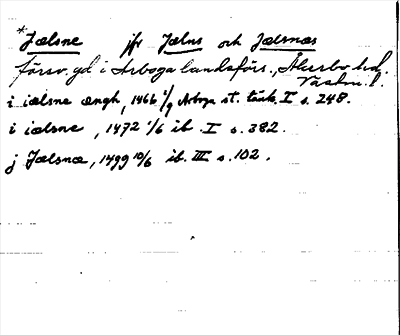 *Jælsne jfr Jælns och Jælsnæs
försv. gd i Arboga landsförs., Åkerbo hd.
Västm. l.
i iælsne ængh, 1466 1/9 Arboga st. tänk. I s. 248.
i iælsne, 1472 1/6 ib. I s. 382.
j Jælsnæ, 1499 10/6 ib. III s. 102.